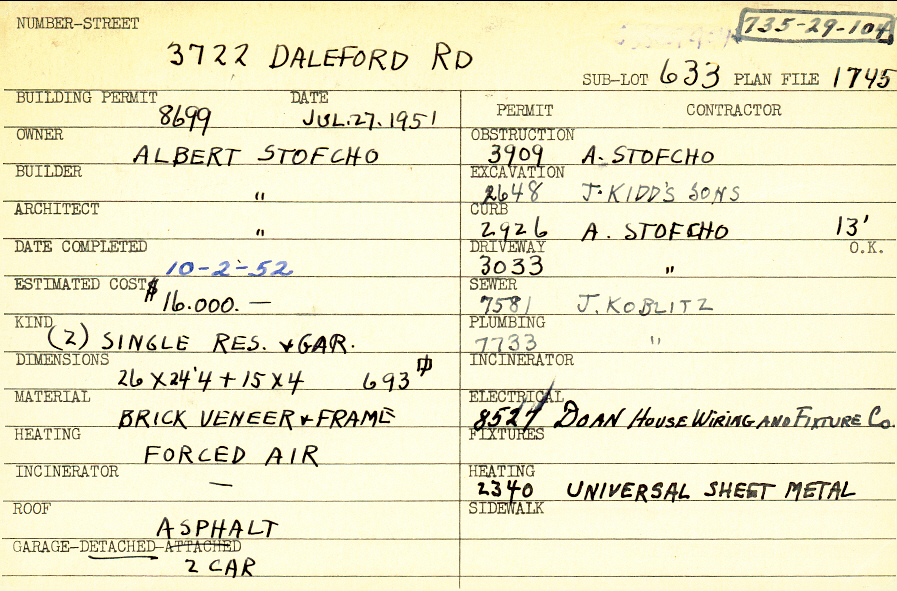 NUMBER-STREET
735-29-104
3722 DALEFORD RD
SUB-LOT 633 PLAN FILE 1745
BUILDING PERMIT DATE
8699 JUL. 27. 1951
OWNER
ALBERT STOFCHO
BUILDER
"
ARCHITECT
"
DATE COMPLETED
10-2-52
ESTIMATED COST
$16.000. —
KIND
(2) SINGLE RES. & GAR.
DIMENSIONS
26 X 24'4 + 15 X 4 693
MATERIAL
BRICK VENEER & FRAME
HEATING
FORCED AIR
INCINERATOR
—
ROOF
ASPHALT
GARAGE-DETACHED-ATTACHED
2 CAR
PERMIT CONTRACTOR
OBSTRUCTION
3909 A. STOFCHO
EXCAVATION
2648 J. KIDD'S SONS
CURB
2926 A. STOFCHO 13'
DRIVEWAY O.K.
3033 "
SEWER
7581 J. KOBLITZ
PLUMBING
7733 "
INCINERATOR
ELECTRICAL
8527 DOAN HOUSE WIRING AND FIXTURE CO.
FIXTURES
HEATING
2340 UNIVERSAL SHEET METAL
SIDEWALK